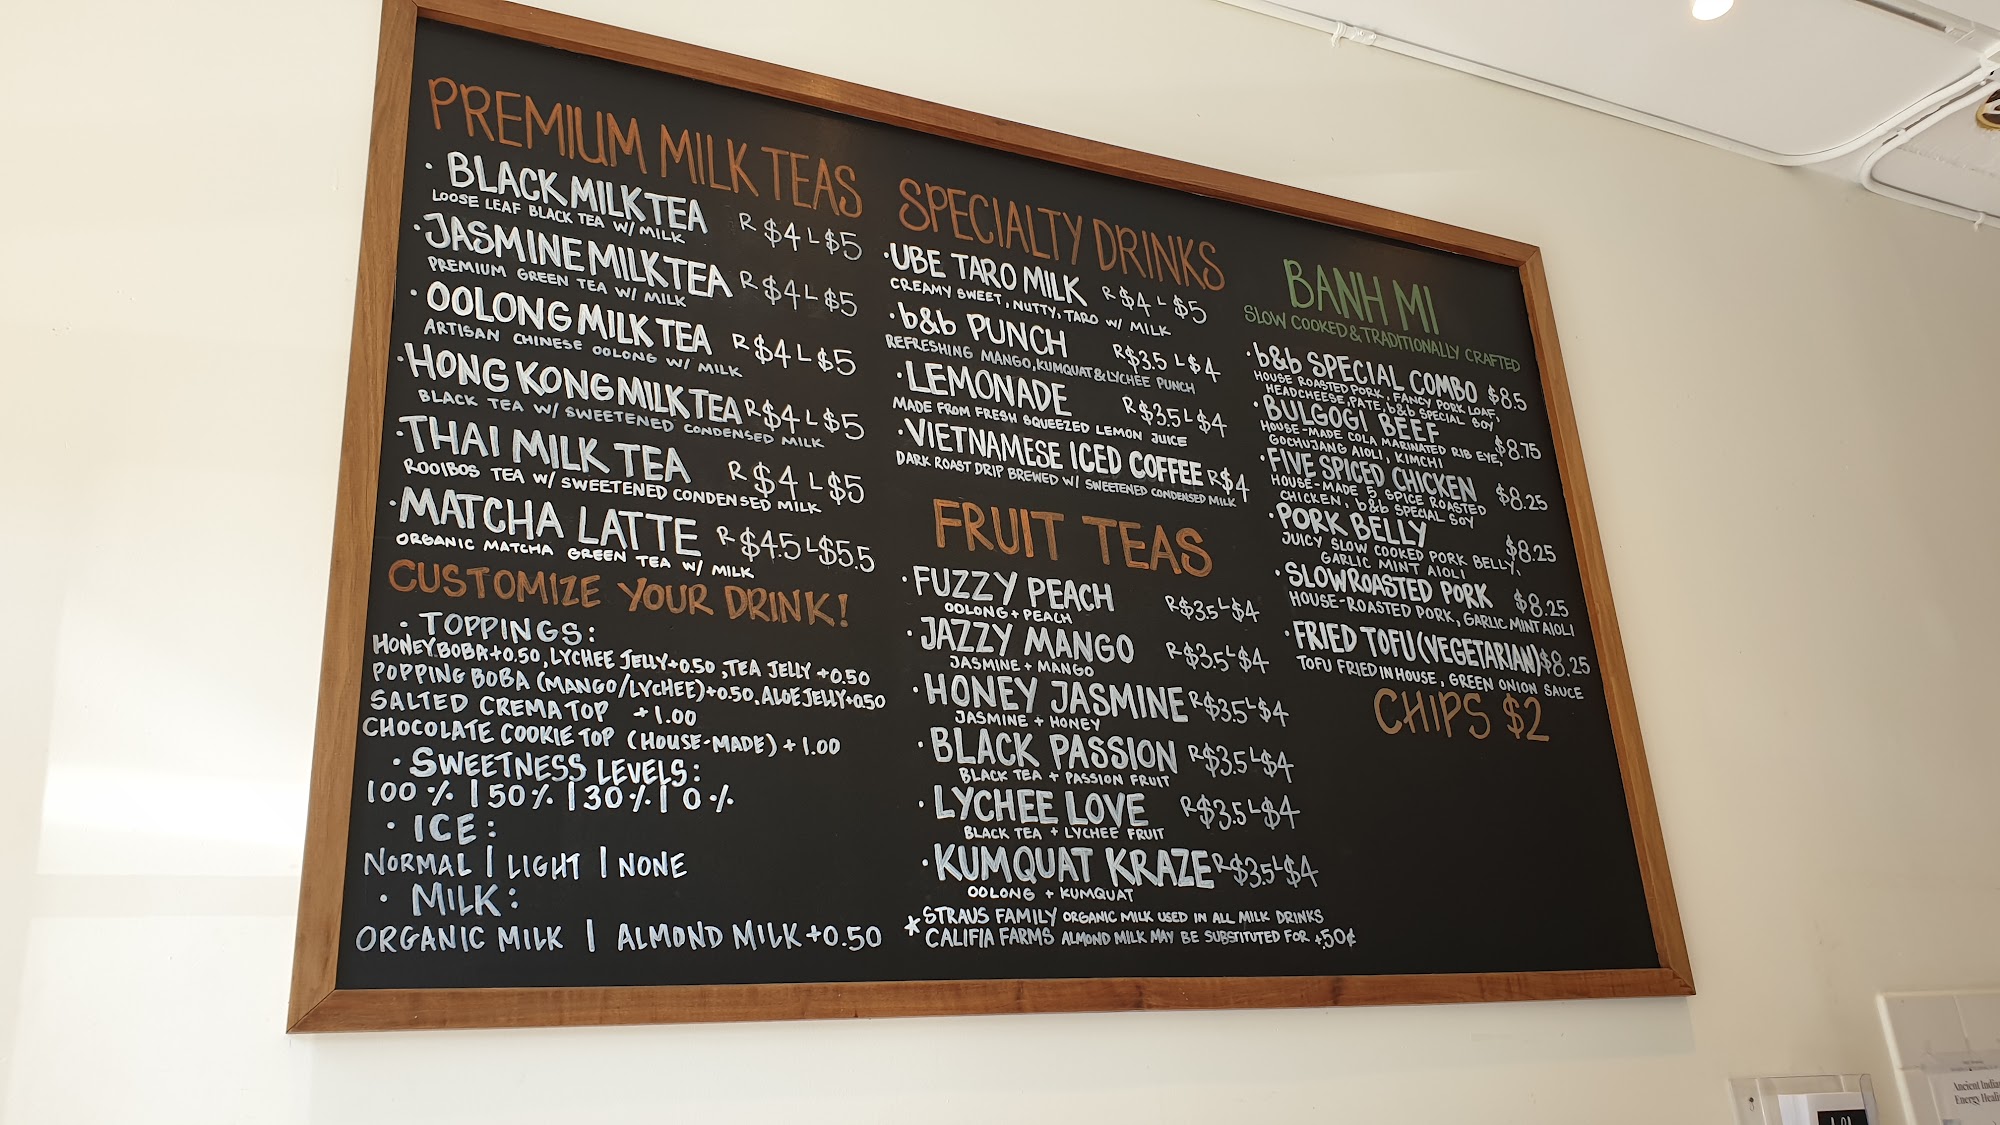 PREMIUM MILK TEAS
· BLACK MILK TEA R $4 L $5
LOOSE LEAF BLACK TEA W/ MILK
· JASMINE MILK TEA R $4 L $5
PREMIUM GREEN TEA W/ MILK
· OOLONG MILK TEA R $4 L $5
ARTISAN CHINESE OOLONG W/ MILK
· HONG KONG MILK TEA R $4 L $5
BLACK TEA W/ SWEETENED CONDENSED MILK
· THAI MILK TEA R $4 L $5
ROOIBOS TEA W/ SWEETENED CONDENSED MILK
· MATCHA LATTE R $4.5 L $5.5
ORGANIC MATCHA GREEN TEA W/ MILK
CUSTOMIZE YOUR DRINK!
· TOPPINGS:
HONEY BOBA +0.50, LYCHEE JELLY +0.50, TEA JELLY +0.50
POPPING BOBA (MANGO/LYCHEE) +0.50, ALOE JELLY +0.50
SALTED CREMA TOP +1.00
CHOCOLATE COOKIE TOP (HOUSE-MADE) + 1.00
· SWEETNESS LEVELS:
100 % | 50 % | 30 % | 0 %
· ICE:
NORMAL | LIGHT | NONE
· MILK:
ORGANIC MILK | ALMOND MILK +0.50
SPECIALTY DRINKS
· UBE TARO MILK R $4 L $5
CREAMY SWEET, NUTTY, TARO W/ MILK
· b&b PUNCH R $3.5 L $4
REFRESHING MANGO, KUMQUAT & LYCHEE PUNCH
· LEMONADE R $3.5 L $4
MADE FROM FRESH SQUEEZED LEMON JUICE
· VIETNAMESE ICED COFFEE R $4
DARK ROAST DRIP BREWED W/ SWEETENED CONDENSED MILK
FRUIT TEAS
· FUZZY PEACH R $3.5 L $4
OOLONG + PEACH
· JAZZY MANGO R $3.5 L $4
JASMINE + MANGO
· HONEY JASMINE R $3.5 L $4
JASMINE + HONEY
· BLACK PASSION R $3.5 L $4
BLACK TEA + PASSION FRUIT
· LYCHEE LOVE R $3.5 L $4
BLACK TEA + LYCHEE FRUIT
· KUMQUAT KRAZE R $3.5 L $4
OOLONG + KUMQUAT
* STRAUS FAMILY ORGANIC MILK USED IN ALL MILK DRINKS
CALIFIA FARMS ALMOND MILK MAY BE SUBSTITUTED FOR +.50¢
BANH MI
SLOW COOKED & TRADITIONALLY CRAFTED
· b&b SPECIAL COMBO $8.5
HOUSE ROASTED PORK, FANCY PORK LOAF,
HEADCHEESE, PATE, b&b SPECIAL SOY
· BULGOGI BEEF $8.75
HOUSE-MADE COLA MARINATED RIB EYE,
GOCHUJANG AIOLI, KIMCHI
· FIVE SPICED CHICKEN $8.25
HOUSE-MADE 5 SPICE ROASTED
CHICKEN, b&b SPECIAL SOY
· PORK BELLY $8.25
JUICY SLOW COOKED PORK BELLY,
GARLIC MINT AIOLI
· SLOW ROASTED PORK $8.25
HOUSE-ROASTED PORK, GARLIC MINT AIOLI
· FRIED TOFU (VEGETARIAN) $8.25
TOFU FRIED IN HOUSE, GREEN ONION SAUCE
CHIPS $2
Ancient India
Energy Heali